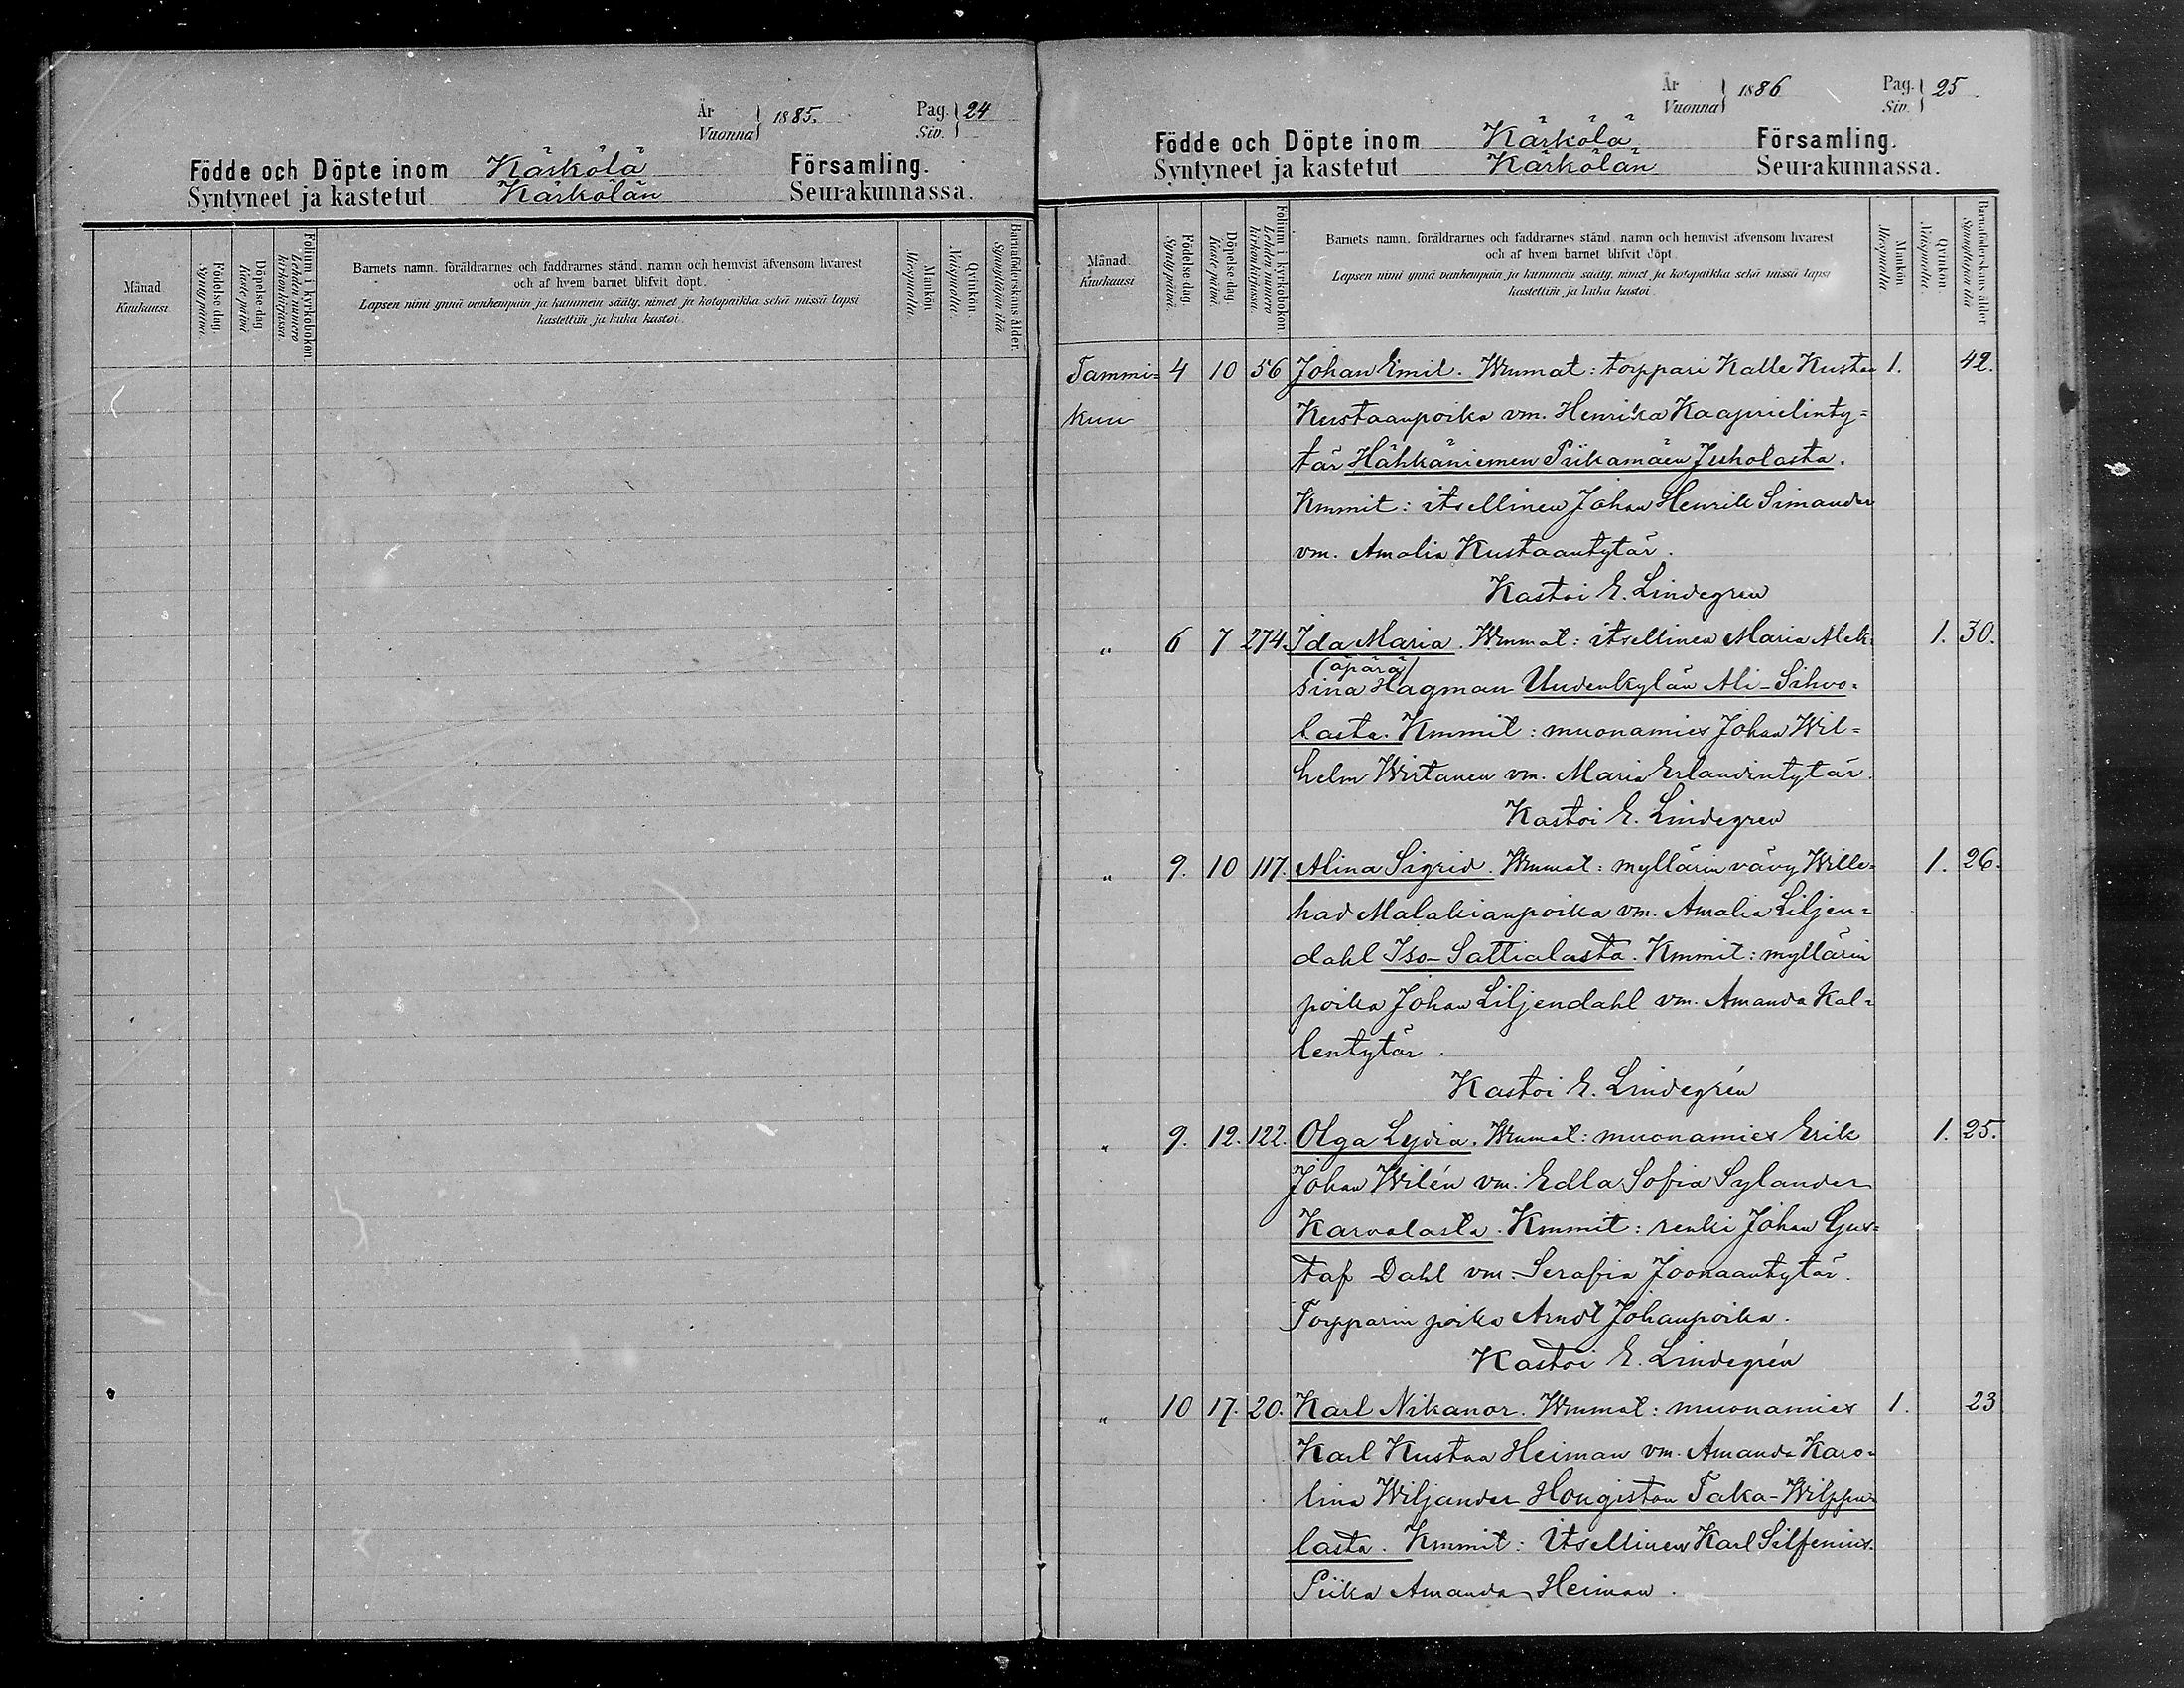 År
Vuonna
1885.
Pag.
Siv.
24
Födde och Döpte inom Kärkölä Församling.
Syntyneet ja kastetut Kärkölän Seurakunnassa.
Månad.
Kuukausi
Födelsedag.
Syntypäivä.
Döpelsedag
Kastepäivä
Folium i kyrkoboken.
Lehden numero
kirkonkirjassa
Barnets namn, föräldrarnes och faddrarnes stånd, namn och hemvist äfvensom hvarest
och af hvem barnet blifvit döpt.
Lapsen nimi ynnä vanhempain ja kummein sääty, nimet ja kotopaikka sekä missä lapsi
kastettiin ja kuka kastoi.
Mankön
Miespuolia
Qvinkön.
Naispuolia.
Barnaföderskans ålder.
Synnyttäjän ikä
År
Vuonna
1886
Pag.
Siv.
25
Födde och Döpte inom Kärkölä Församling.
Syntyneet ja kastetut Kärkölän Seurakunnassa.
Månad.
Kuukausi
Födelsedag.
Syntypäivä.
Döpelsedag
Kastepäivä.
Folium i kyrkoboken
Lehden numero
kirkonkirjassa.
Barnets namn, föräldrarnes och faddrarnes stånd, namn och hemvist äfvensom hvarest
och af hvem barnet blifvit döpt.
Lapsen nimi ynnä vanhempain ja kummein sääty, nimet ja kotopaikka sekä missä lapsi
kastettiin ja kuka kastoi.
Mankön
Miespuolia
Qvinkön.
Naispuolia
Barnaföderskans ålder
Synnyttäjän ikä
Tammi= 4 10 56 Johan Emil. Wmmat: torppari Kalle Kustaa 1. 42.
kuu Kustaanpoika vm. Henrika Kaaprielinty=
tär Hähkäniemen Piikamäen Juholasta.
Kmmit: itsellinen Johan Henrik Simander
vm. Amalia Kustaantytär.
Kastoi E. Lindegren
" 6 7 274. Ida Maria. Wmmat: itsellinen Maria Alek 1. 30.
(äpärä)
sina Hagman Uudenkylän Ali-Sihvo=
lasta. Kmmit: muonamies Johan Wil=
helm Wirtanen vm. Maria Erlandintytär.
Kastoi E. Lindegren
" 9. 10 117. Alina Sigrid. Wmmat: myllärin vävy Wille= 1. 26.
had Malakianpoika vm. Amalia Liljen=
dahl Iso-Sattialasta. Kmmit: myllärin
poika Johan Liljendahl vm. Amanda Kal=
lentytär.
Kastoi E. Lindegrén
" 9. 12. 122. Olga Lydia. Wmmat: muonamies Erik 1. 25.
Johan Wilén vm. Edla Sofia Sylander
Karvalasta. Kmmit: renki Johan Gus=
taf Dahl vm. Serafia Joonaantytär.
Torpparin poika Arndt Johanpoika.
Kastoi E. Lindegrén
" 10 17. 20. Karl Nikanor. Wmmat: muonamies 1. 23
Karl Kustaa Heiman vm. Amanda Karo=
lina Wiljander Hongiston Taka-Wilppu=
lasta. Kmmit: Itsellinen Karl Silfenius.
Piika Amanda Heiman.